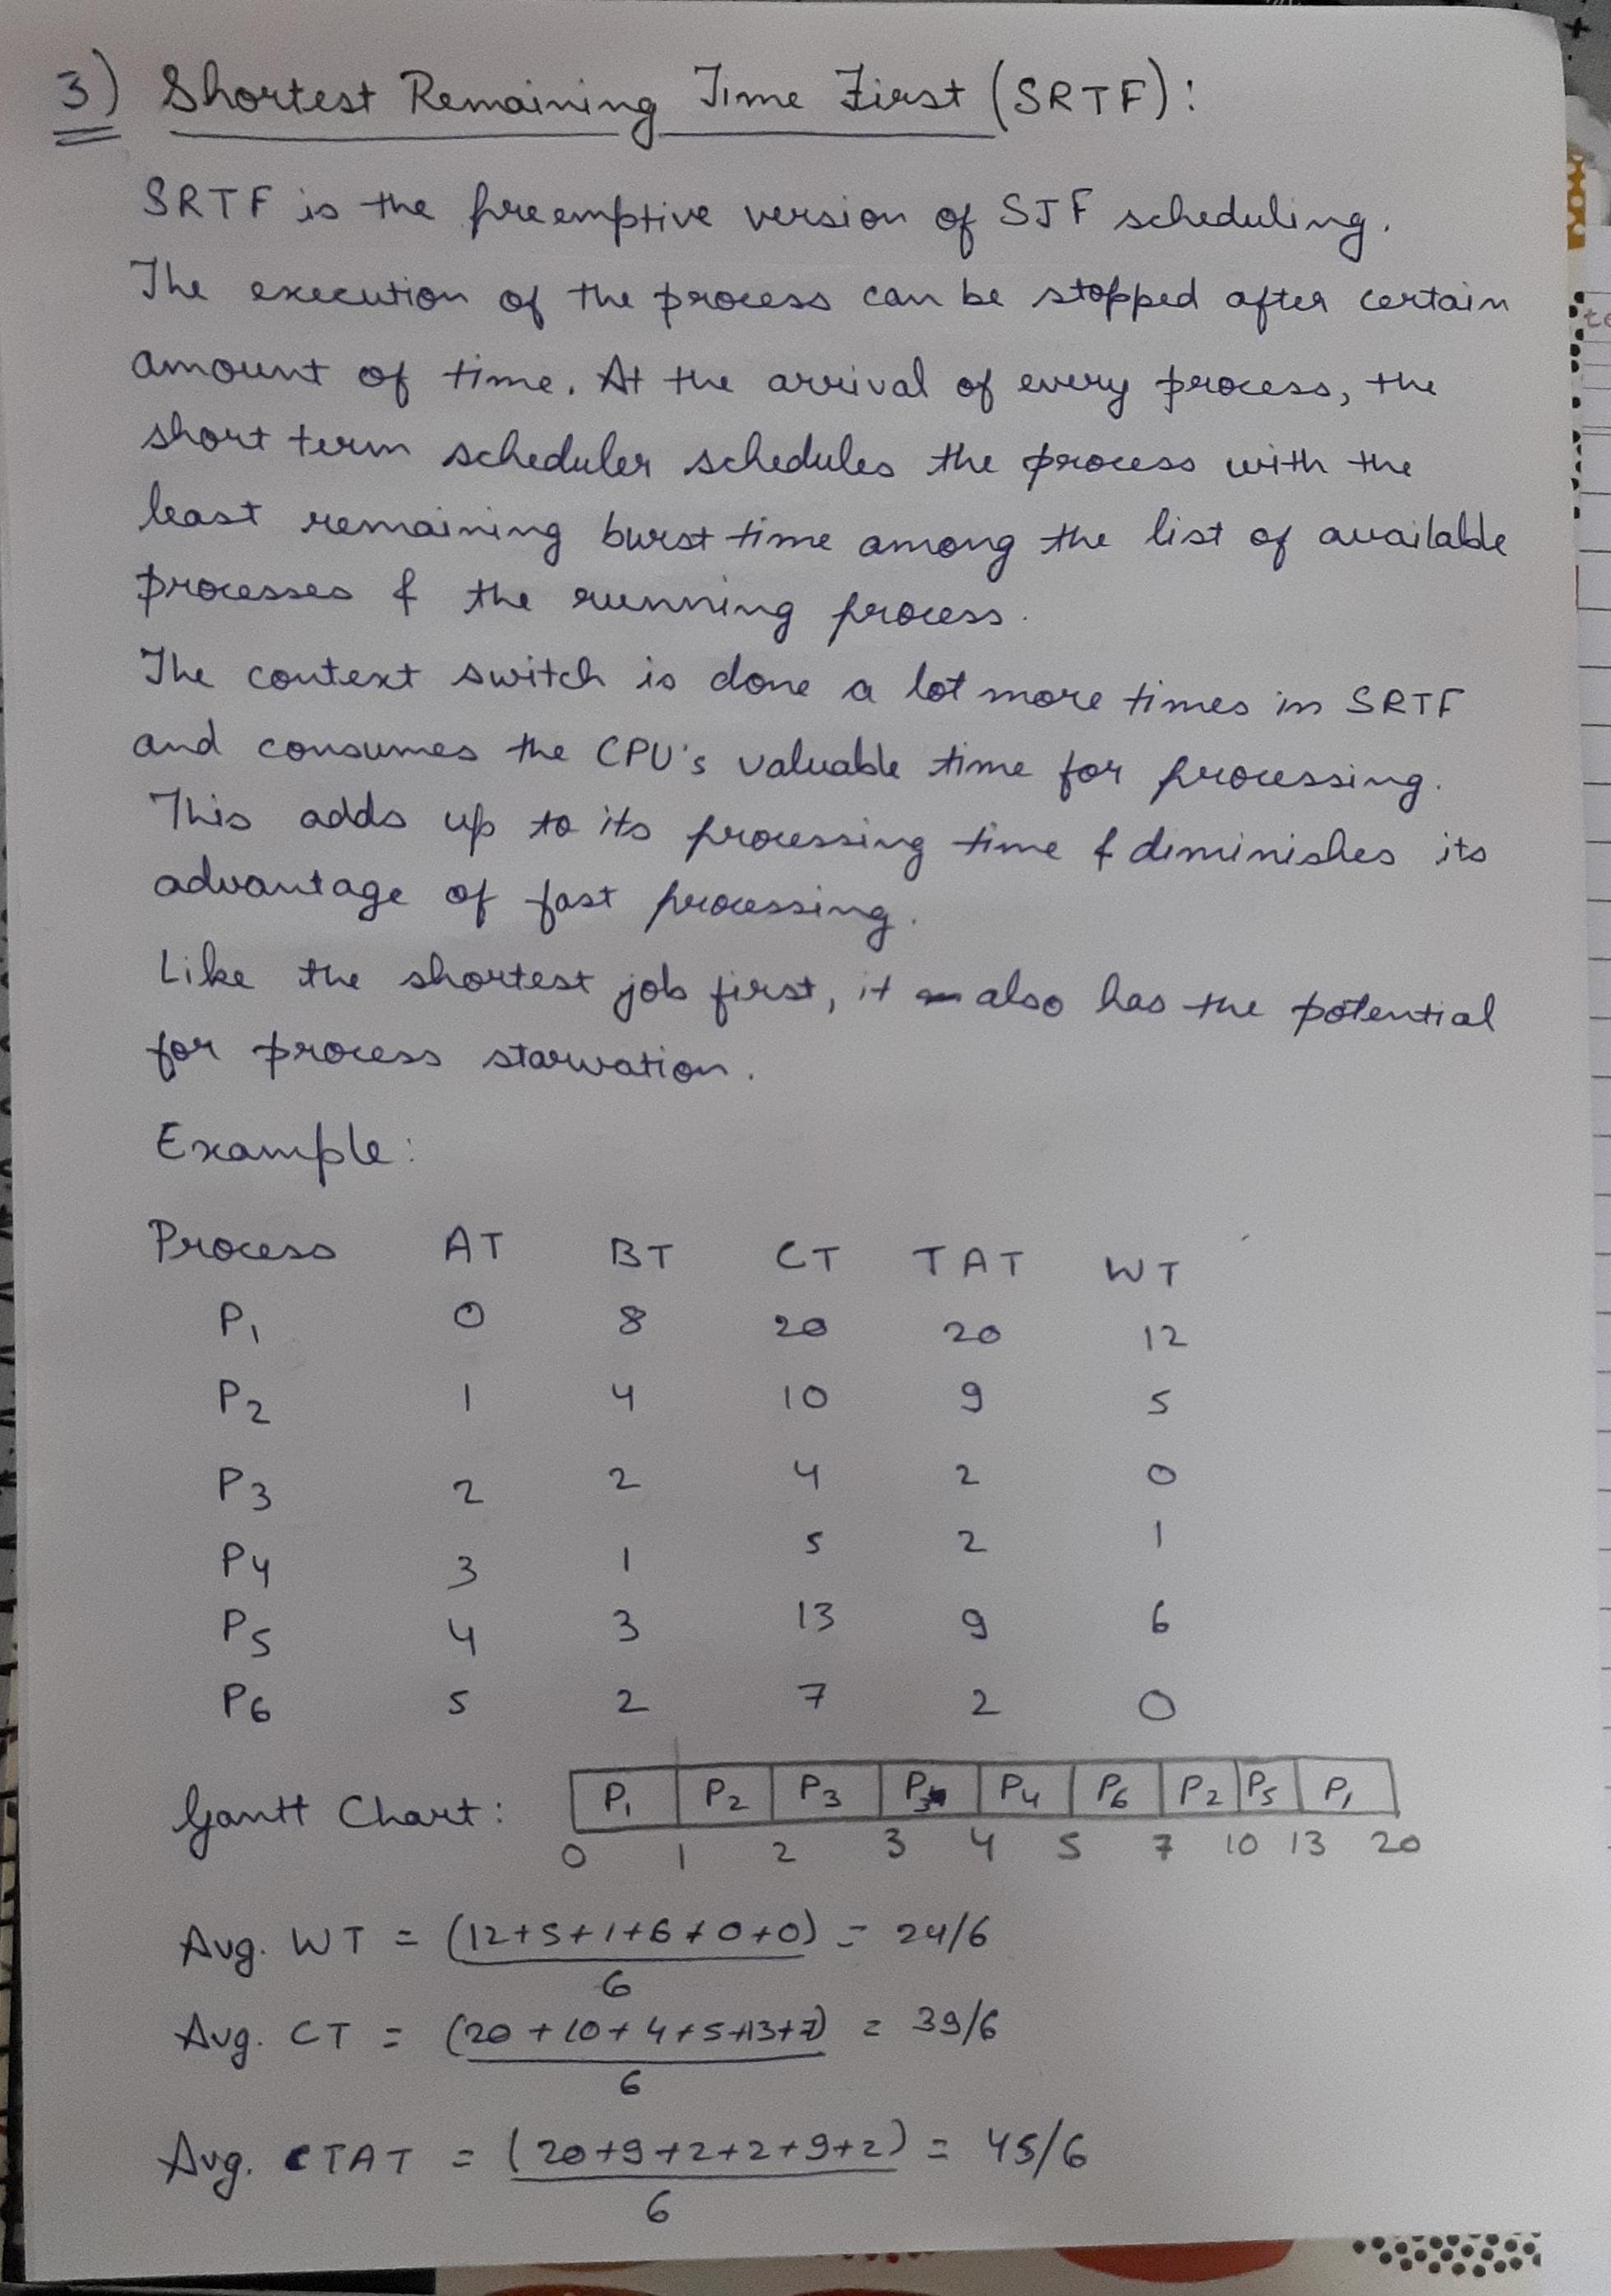 3) Shortest Remaining Time First (SRTF):
SRTF is the preemptive version of SJF scheduling.
The execution of the process can be stopped after certain
amount of time. At the arrival of every process, the
short term scheduler schedules the process with the
least remaining burst time among the list of available
processes & the running process.
The context switch is done a lot more times in SRTF
and consumes the CPU's valuable time for processing.
This adds up to its processing time & diminishes its
advantage of fast processing.
Like the shortest job first, it also has the potential
for process starvation.
Example:
Process AT BT CT TAT WT
P1 0 8 20 20 12
P2 1 4 10 9 5
P3 2 2 4 2 0
P4 3 1 5 2 1
P5 4 3 13 9 6
P6 5 2 7 2 0
Gantt Chart: P1 P2 P3 P3 P4 P6 P2 P5 P1
0 1 2 3 4 5 7 10 13 20
Avg. WT = (12+5+1+6+0+0) = 24/6
6
Avg. CT = (20+10+4+5+13+7) = 39/6
6
Avg. TAT = (20+9+2+2+9+2) = 45/6
6